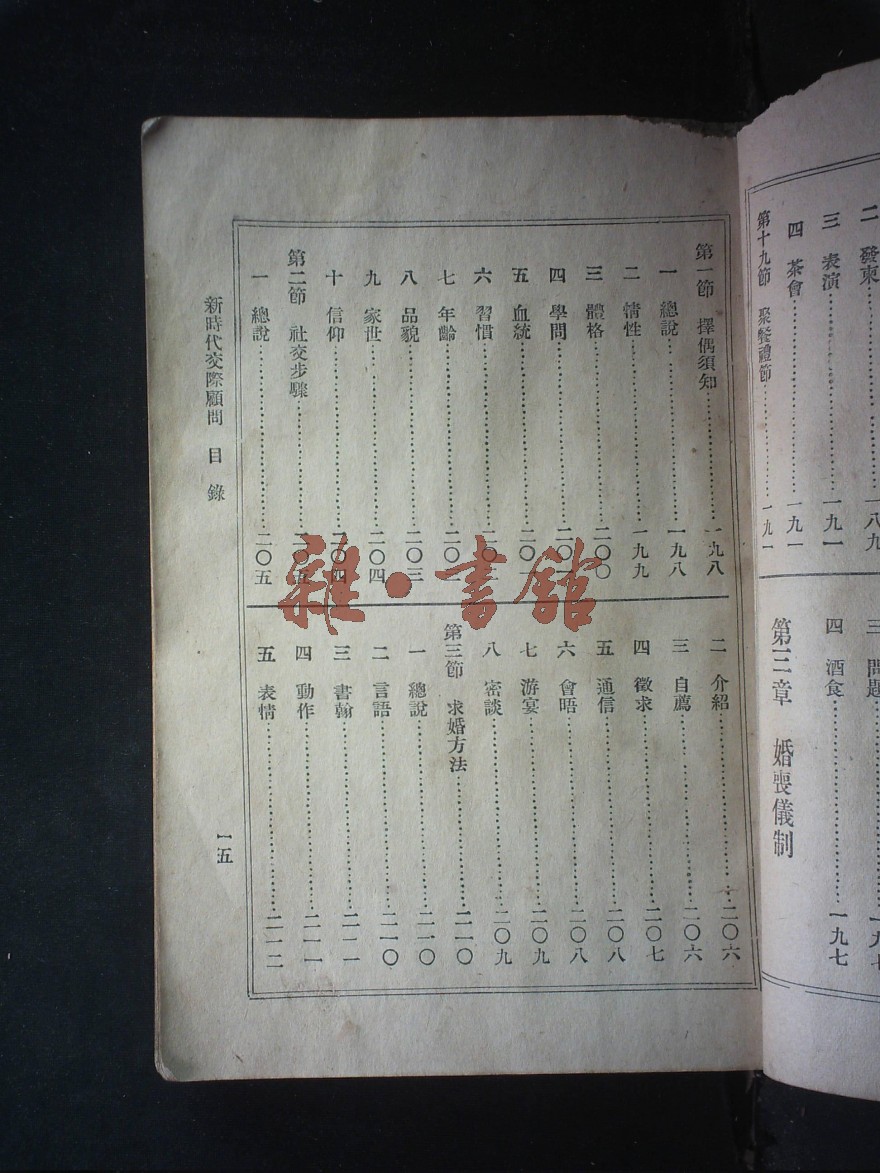 二 發柬……一八九
三 表演……一九一
四 茶會……一九一
第十九節 聚餐禮節……一九一
三 問題……一九七
四 酒食……一九七
第三章 婚喪儀制
第一節 擇偶須知……一九八
一 總說……一九八
二 情性……一九九
三 體格……二〇〇
四 學問……二〇一
五 血統……二〇
六 習慣……二〇
七 年齡……二〇
八 品貌……二〇三
九 家世……二〇四
十 信仰……二〇四
第二節 社交步驟……二〇五
一 總說……二〇五
二 介紹……二〇六
三 自薦……二〇六
四 徵求……二〇七
五 通信……二〇八
六 會晤……二〇八
七 游宴……二〇九
八 密談……二〇九
第三節 求婚方法……二一〇
一 總說……二一〇
二 言語……二一〇
三 書翰……二一一
四 動作……二一一
五 表情……二一二
新時代交際顧問 目錄
一五
雜·書館